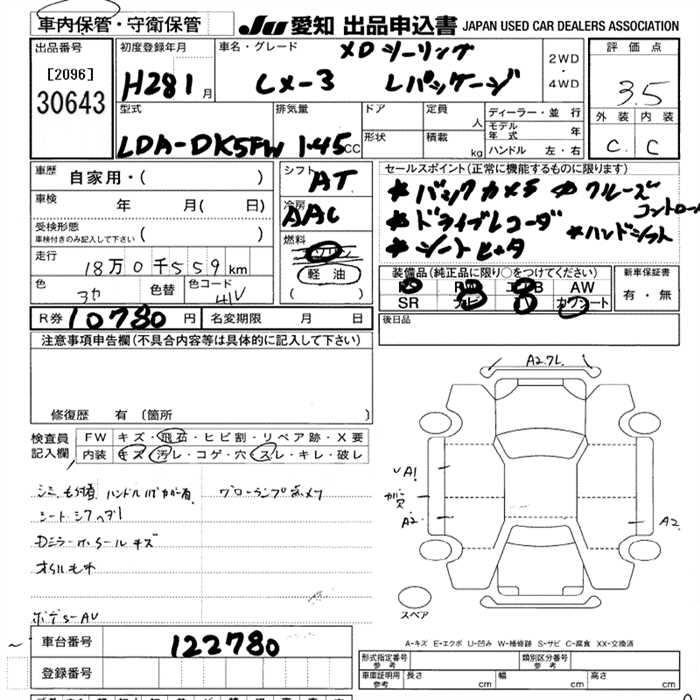 車内保管・守衛保管
JU 愛知 出品申込書 JAPAN USED CAR DEALERS ASSOCIATION
出品番号
[2096]
30643
初度登録年月
H28 1 月
車名・グレード
XD ツーリング
CX-3 Lパッケージ
2WD
・
4WD
評価点
3.5
外装 内装
C C
型式
LDA-DK5FW
排気量
1.45 CC
ドア
形状
定員 人
積載 kg
ディーラー・並行
モデル年式 年
ハンドル 左・右
車歴
自家用・( )
車検
年 月( 日)
受検形態
車検付きのみ記入して下さい ( )
走行
18万0千559 km
色
色替
色コード
41V
シフト
AT
冷房
AAC
燃料
軽油
( )
セールスポイント(正常に機能するものに限ります)
*バックカメラ *クルーズコントロール
*ドライブレコーダ *ハンドシフト
*シートヒータ
装備品(純正品に限り○をつけてください)
AW
SR ナビ TV カワシート
新車保証書
有・無
R券 10780 円
名変期限 月 日
後日品
注意事項申告欄(不具合内容等は具体的に記入して下さい)
修復歴 有 〔箇所 〕
検査員
記入欄
FW キズ・飛石・ヒビ割・リペア跡・X要
内装 キズ・汚レ・コゲ・穴・スレ・キレ・破レ
シートシワヘコミ
Dミラーホールキズ
A2
A1
A2
A2
スペア
A-キズ E-エクボ U-凹み W-補修跡 S-サビ C-腐食 XX-交換済
車台番号
122780
登録番号
形式指定番号
参考
類別区分番号
参考
車庫証明用
参考
長さ cm
幅 cm
高さ cm